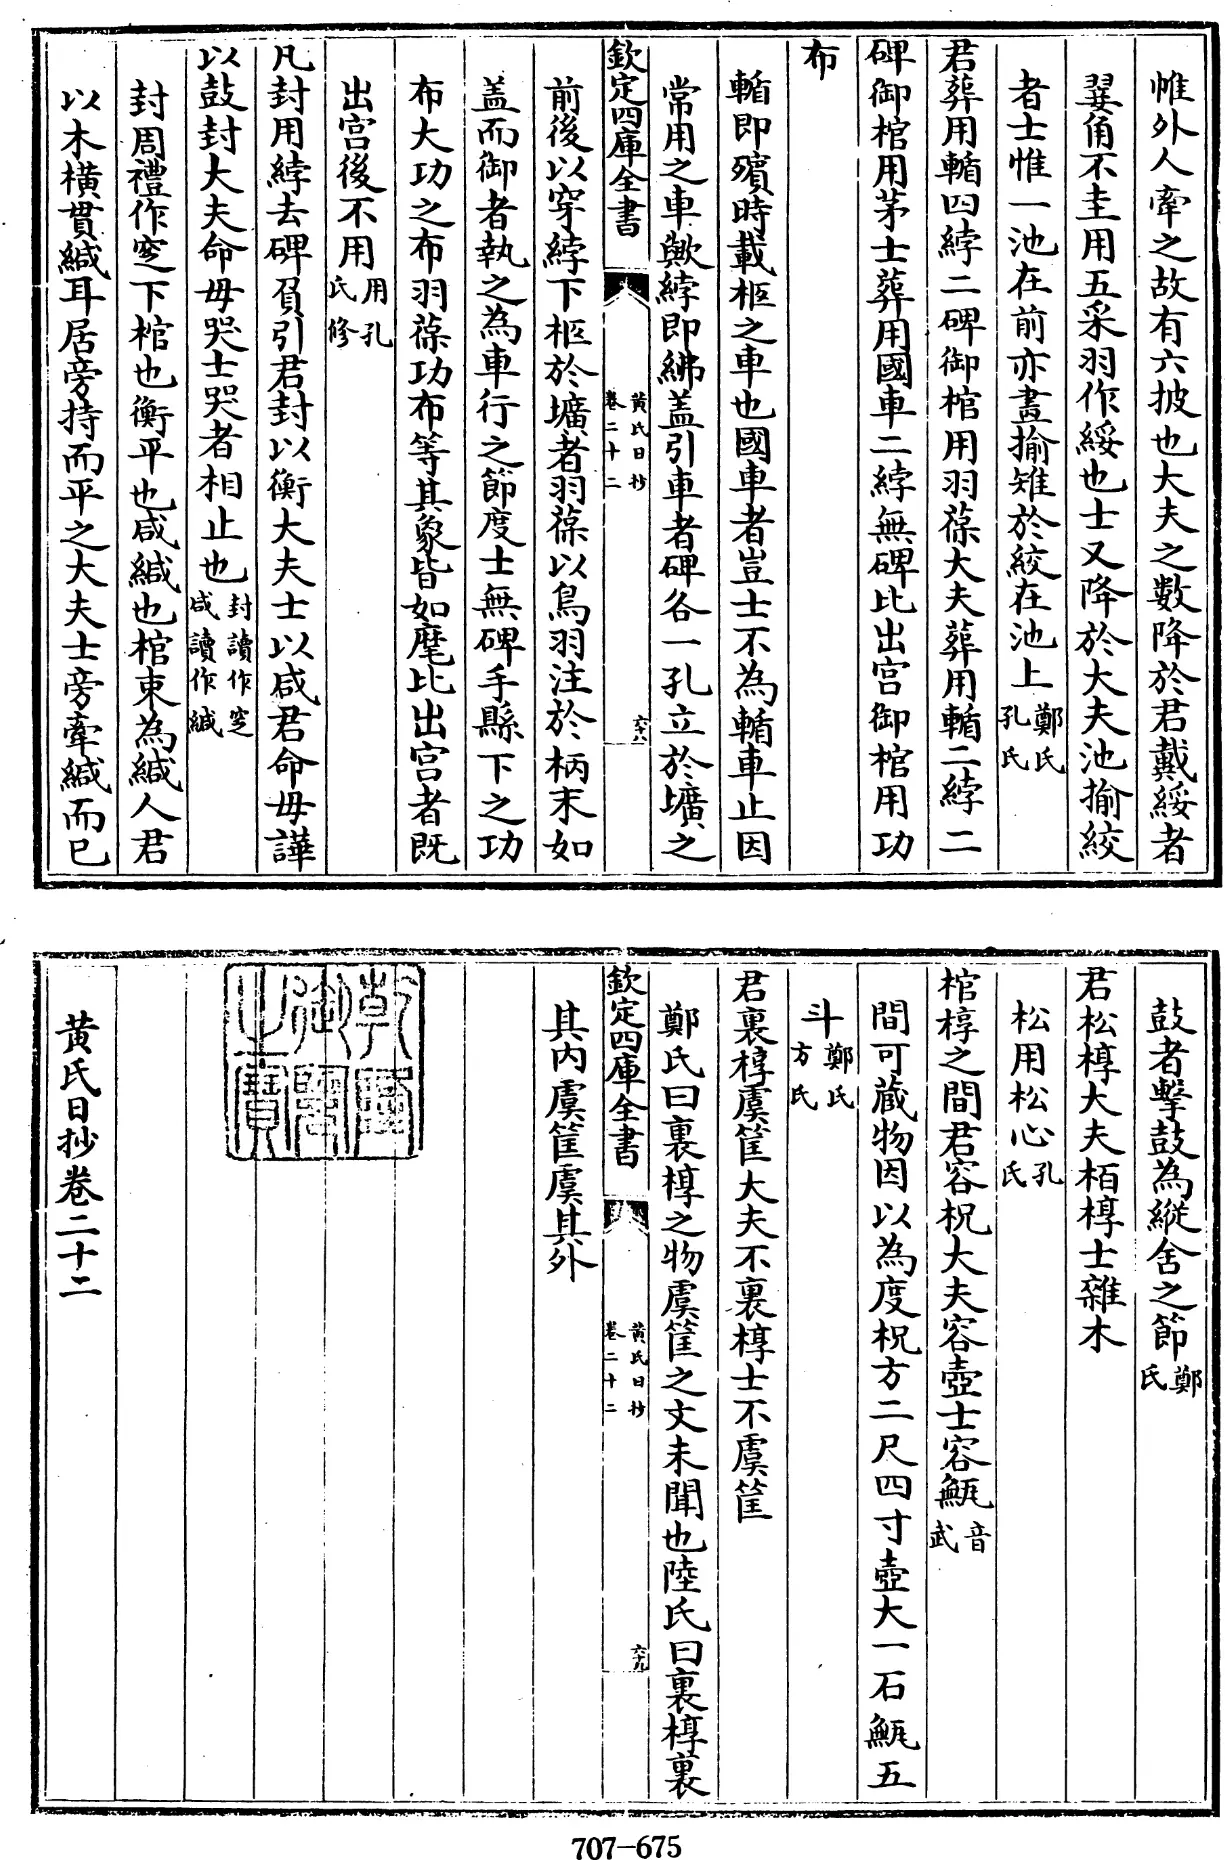 帷外人牽之故有六披也大夫之數降於君戴綏者
翣角不圭用五采羽作綏也士又降於大夫池揄絞
者士惟一池在前亦畫揄雉於絞在池上鄭氏孔氏
君葬用輴四綍二碑御棺用羽葆大夫葬用輴二綍二
碑御棺用茅士葬用國車二綍無碑比出宫御棺用功
布
輴即殯時載柩之車也國車者豈士不為輴車止因
常用之車歟綍即紼盖引車者碑各一孔立於壙之
欽定四庫全書
黄氏日抄
卷二十二
六十八
前後以穿綍下柩於壙者羽葆以鳥羽注於柄末如
盖而御者執之為車行之節度士無碑手縣下之功
布大功之布羽葆功布等其象皆如麾比出宫者既
出宫後不用用孔氏修
凡封用綍去碑負引君封以衡大夫士以咸君命毋譁
以鼓封大夫命毋哭士哭者相止也封讀作窆咸讀作緘
封周禮作窆下棺也衡平也咸緘也棺束為緘人君
以木横貫緘耳居旁持而平之大夫士旁牽緘而已
鼓者擊鼓為縱舍之節鄭氏
君松椁大夫栢椁士雜木
松用松心孔氏
棺椁之間君容柷大夫容壺士容甒音武
間可蔵物因以為度柷方二尺四寸壺大一石甒五
斗鄭氏方氏
君裏椁虞筐大夫不裏椁士不虞筐
鄭氏曰裏椁之物虞筐之文未聞也陸氏曰裏椁裏
欽定四庫全書
黄氏日抄
卷二十二
六十九
其内虞筐虞其外
乾隆御覽之寶
黄氏日抄卷二十二
707-675